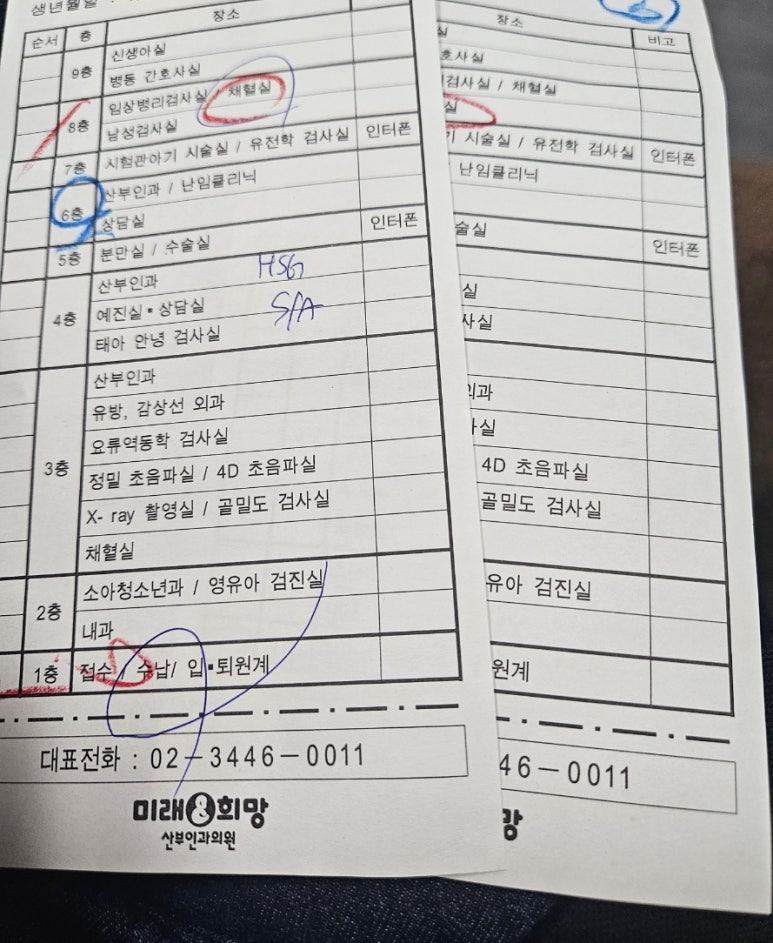 생년월일
순서 층 장소
9층 신생아실
병동 간호사실
8층 임상병리검사실 / 채혈실
남성검사실
7층 시험관아기 시술실 / 유전학 검사실 인터폰
6층 산부인과 / 난임클리닉
상담실
5층 분만실 / 수술실 인터폰
4층 산부인과 HSG
예진실▪상담실 S/A
태아 안녕 검사실
3층 산부인과
유방, 갑상선 외과
요류역동학 검사실
정밀 초음파실 / 4D 초음파실
X- ray 촬영실 / 골밀도 검사실
채혈실
2층 소아청소년과 / 영유아 검진실
내과
1층 접수 / 수납/ 입▪퇴원계
대표전화 : 02-3446-0011
미래&희망
산부인과의원
장소 비고
실
호사실
검사실 / 채혈실
실
기 시술실 / 유전학 검사실 인터폰
/ 난임클리닉
술실 인터폰
실
사실
외과
사실
4D 초음파실
골밀도 검사실
유아 검진실
원계
46-0011
망